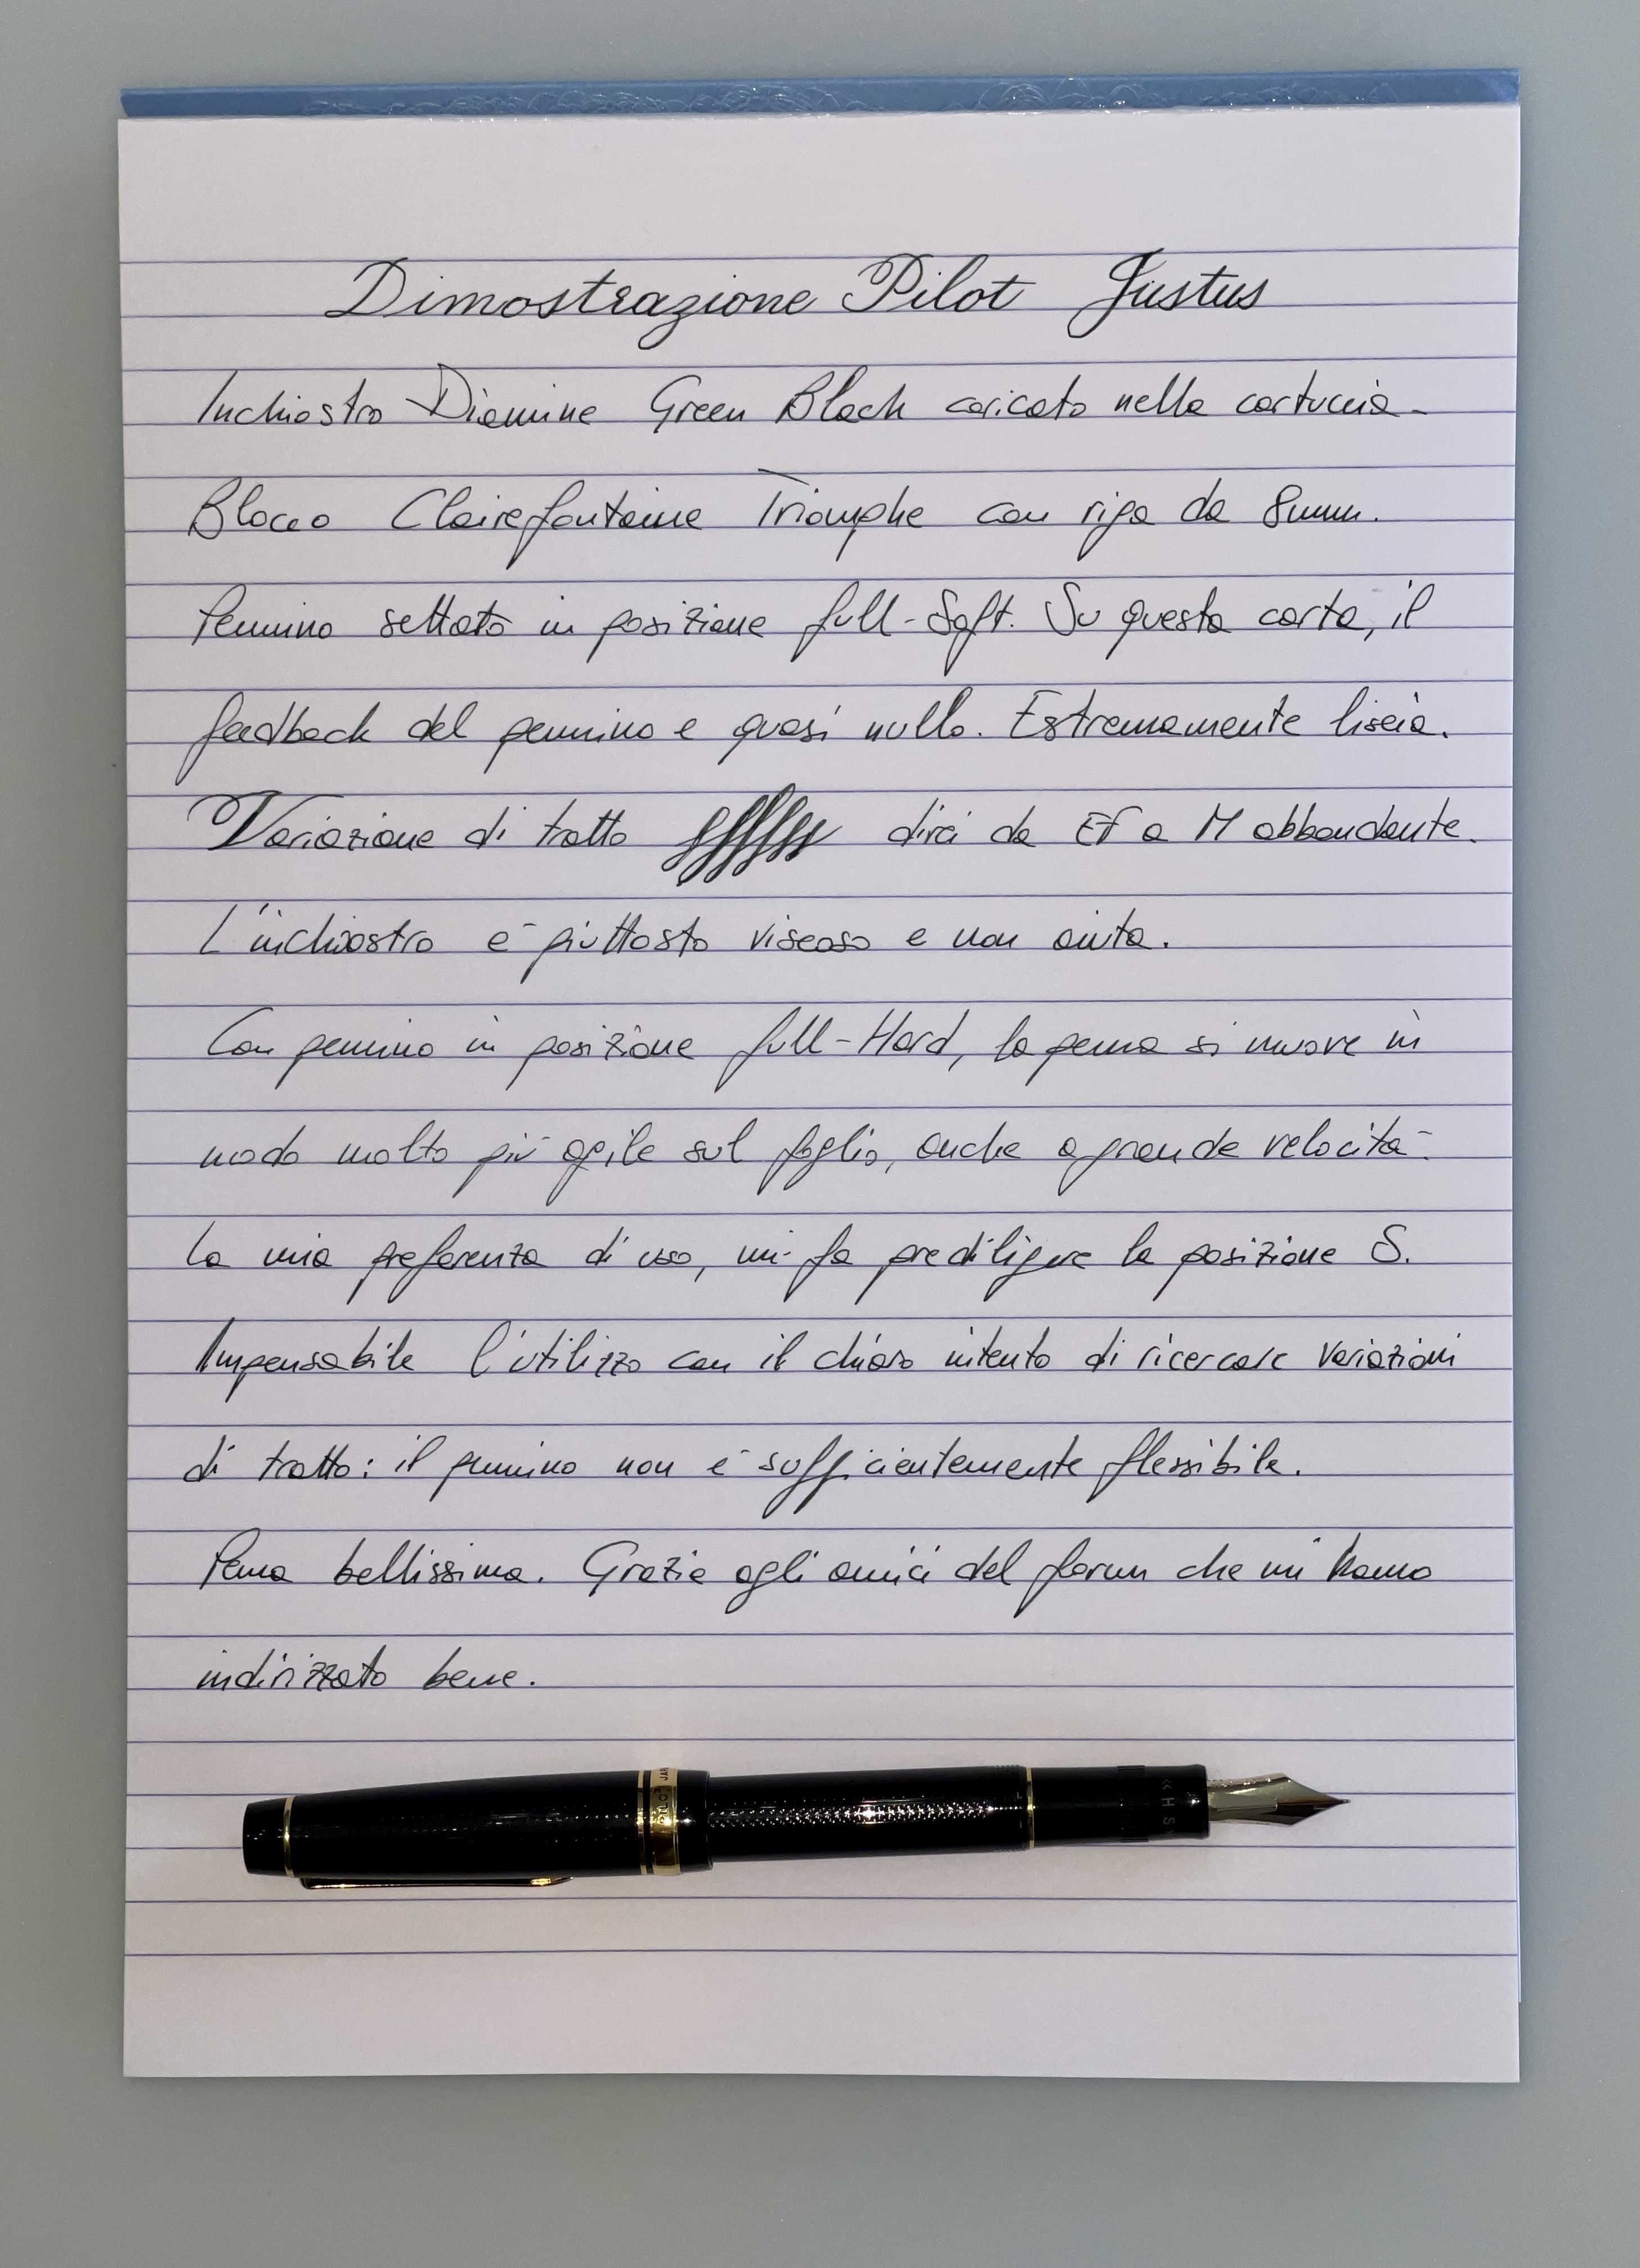 Dimostrazione Pilot Justus
Inchiostro Diamine Green Black caricato nella cartuccia.
Blocco Clairefontaine Triomphe con riga da 8mm.
Pennino settato in posizione full-Soft. Su questa carta, il
feedback del pennino e quasi nullo. Estremamente liscia.
Variazione di tratto direi da EF a M abbondante.
L'inchiostro è piuttosto viscoso e non aiuta.
Con pennino in posizione full-Hard, la penna si muove in
modo molto più agile sul foglio, anche a grande velocità.
La mia preferenza di uso, mi fa prediligere la posizione S.
Impensabile l'utilizzo con il chiaro intento di ricercare variazioni
di tratto: il pennino non è sufficientemente flessibile.
Penna bellissima. Grazie agli amici del forum che mi hanno
indirizzato bene.
PILOT JAP
« H S